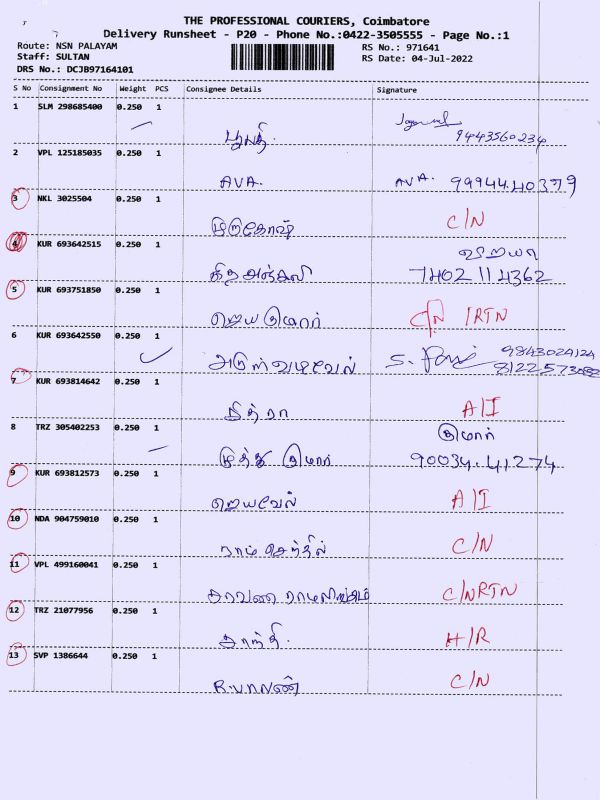 THE PROFESSIONAL COURIERS, Coimbatore
Delivery Runsheet - P20 - Phone No.:0422-3505555 - Page No.:1
Route: NSN PALAYAM
Staff: SULTAN
DRS No.: DCJB97164101
RS No.: 971641
RS Date: 04-Jul-2022
S No Consignment No Weight PCS Consignee Details Signature
1 SLM 298685400 0.250 1
9443560234
2 VPL 125185035 0.250 1
AVA. AVA. 99944.40379
3 NKL 3025504 0.250 1
முருகோஷ் C/N
4 KUR 693642515 0.250 1
7402114362
5 KUR 693751850 0.250 1
ஜெயகுமார் C/N /RTN
6 KUR 693642550 0.250 1
9843024124
அருள்வடிவேல் 8122573082
7 KUR 693814642 0.250 1
மித்ரா A/I
8 TRZ 305402253 0.250 1
குமார்
முத்து குமார் 90034.41274
9 KUR 693812573 0.250 1
ஜெயவேல் A/I
10 NDA 904759010 0.250 1
ராம் செந்தில் C/N
11 VPL 499160041 0.250 1
சரவண ராமலிங்கம் C/NRTN
12 TRZ 21077956 0.250 1
சாந்தி. H/R
13 SVP 1386644 0.250 1
R.பாலன் C/N